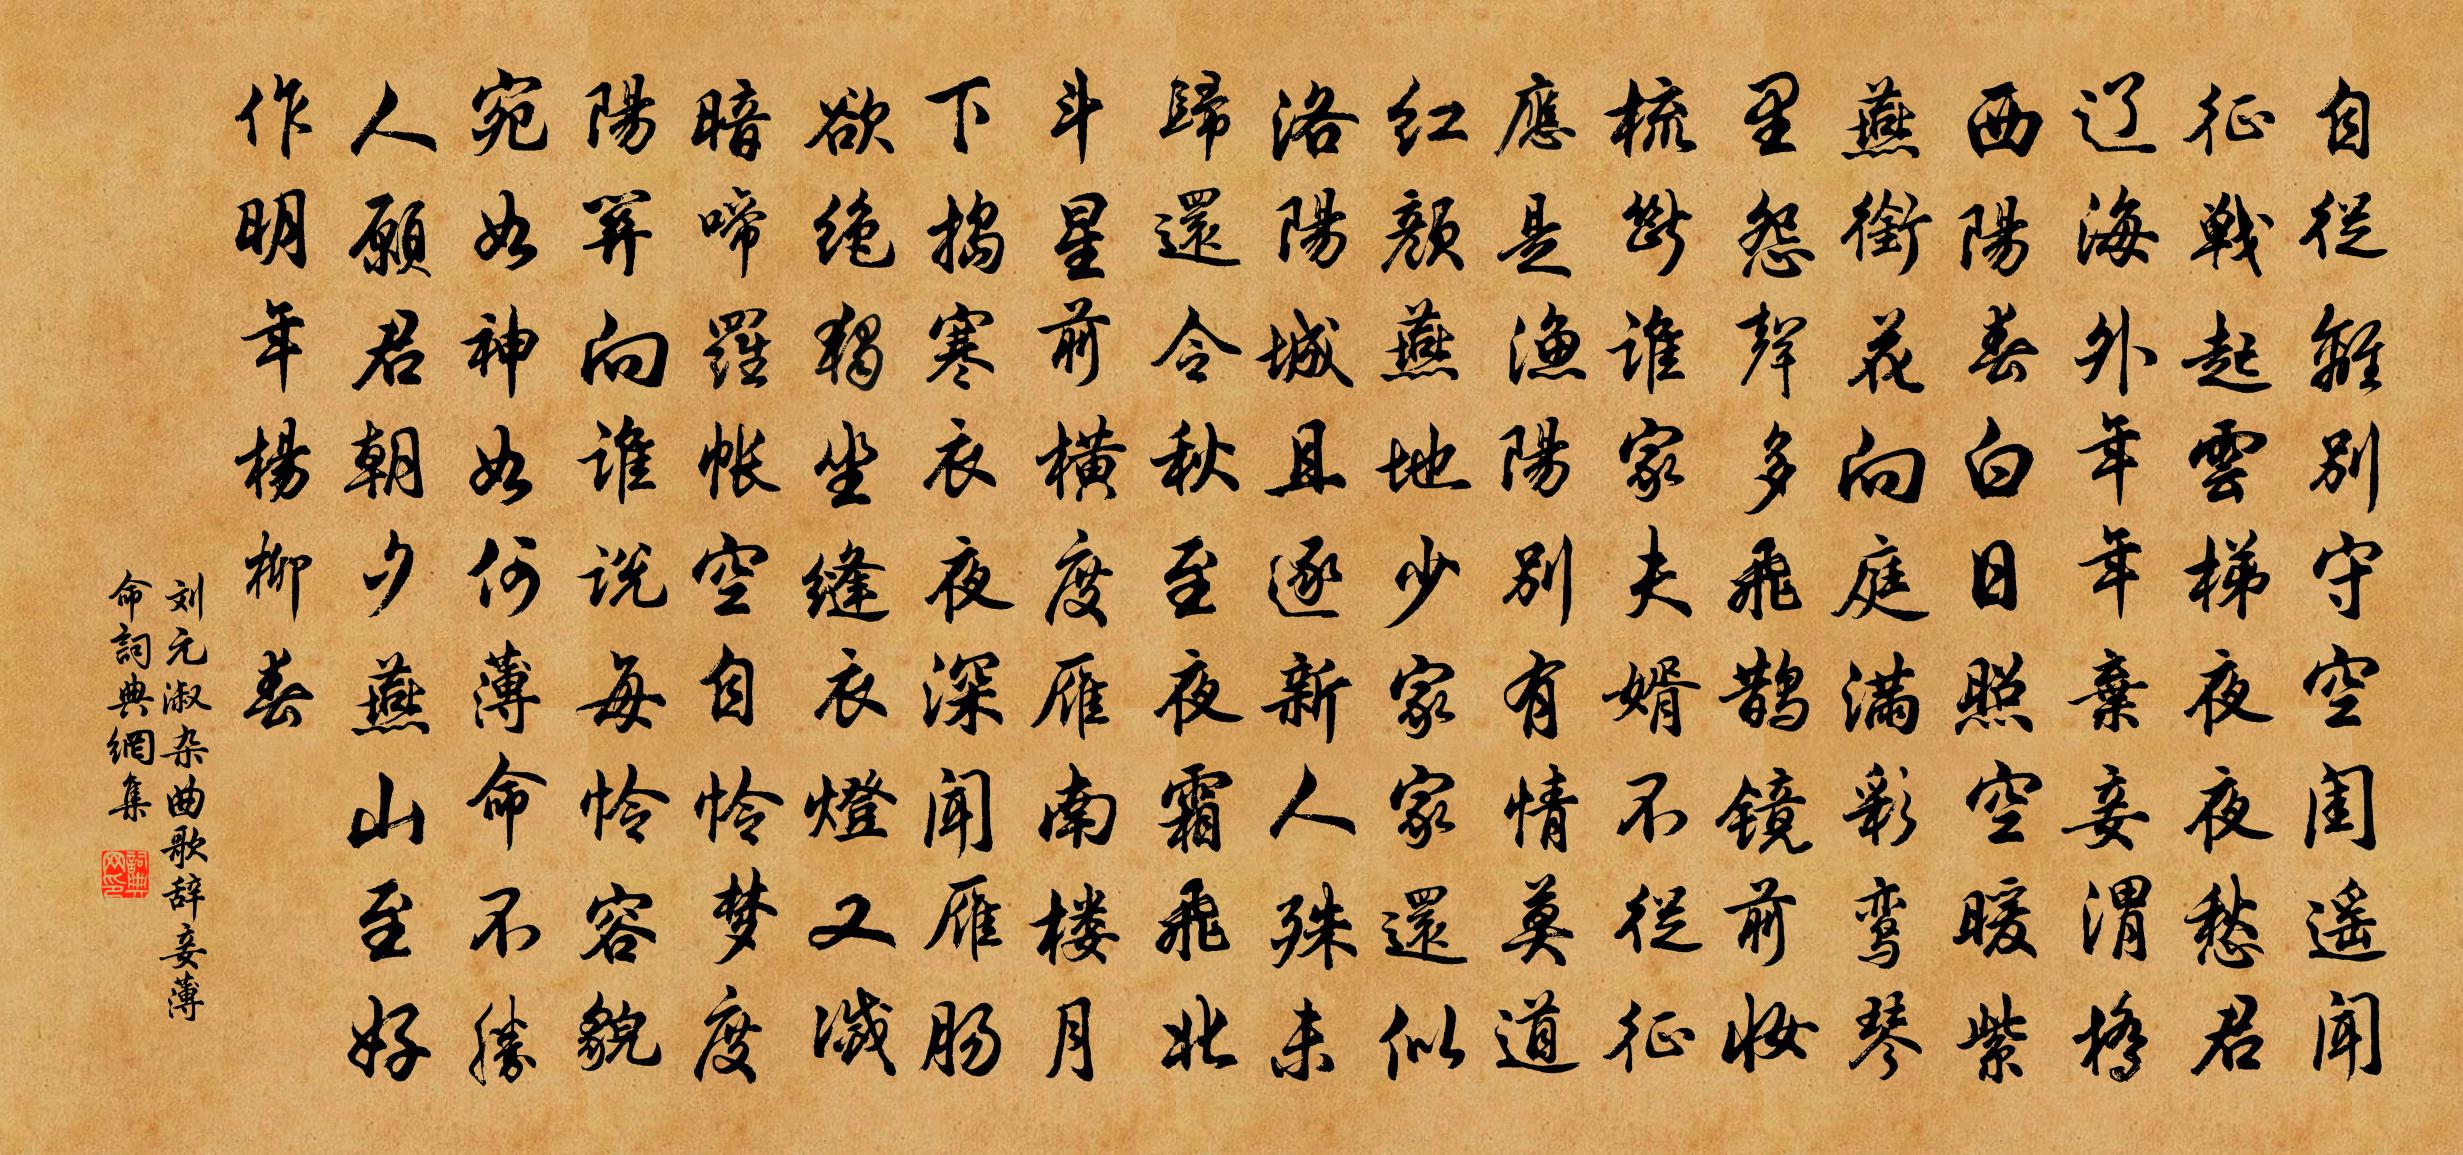 自從離别守空闺遥闻
征戰起雲梯夜夜愁君
辽海外年年棄妾渭橋
西陽春白日照空暖紫
燕銜花向庭满彩鸾琴
里怨聲多飛鹊镜前妝
梳斷谁家夫婿不從征
應是漁陽别有情莫道
红颜燕地少家家還似
洛陽城且逐新人殊未
歸還令秋至夜霜飛北
斗星前横度雁南楼月
下搗寒衣夜深闻雁肠
欲绝獨坐縫衣燈又滅
暗啼羅帐空自怜梦度
陽關向谁说每怜容貌
宛如神如何薄命不勝
人願君朝夕燕山至好
作明年楊柳春
刘元淑杂曲歌辞妾薄
命詞典網集
詞典
网印